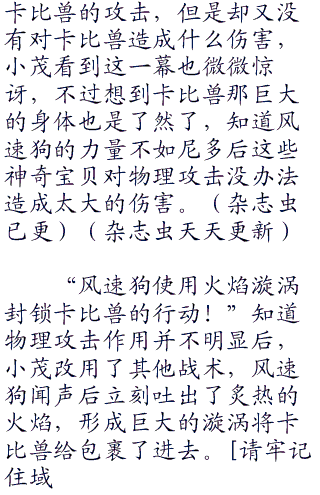 卡比兽的攻击，但是却又没
有对卡比兽造成什么伤害，
小茂看到这一幕也微微惊
讶，不过想到卡比兽那巨大
的身体也是了然了，知道风
速狗的力量不如尼多后这些
神奇宝贝对物理攻击没办法
造成太大的伤害。（杂志虫
已更）（杂志虫天天更新）
“风速狗使用火焰漩涡
封锁卡比兽的行动！”知道
物理攻击作用并不明显后，
小茂改用了其他战术，风速
狗闻声后立刻吐出了炙热的
火焰，形成巨大的漩涡将卡
比兽给包裹了进去。[请牢记
住域